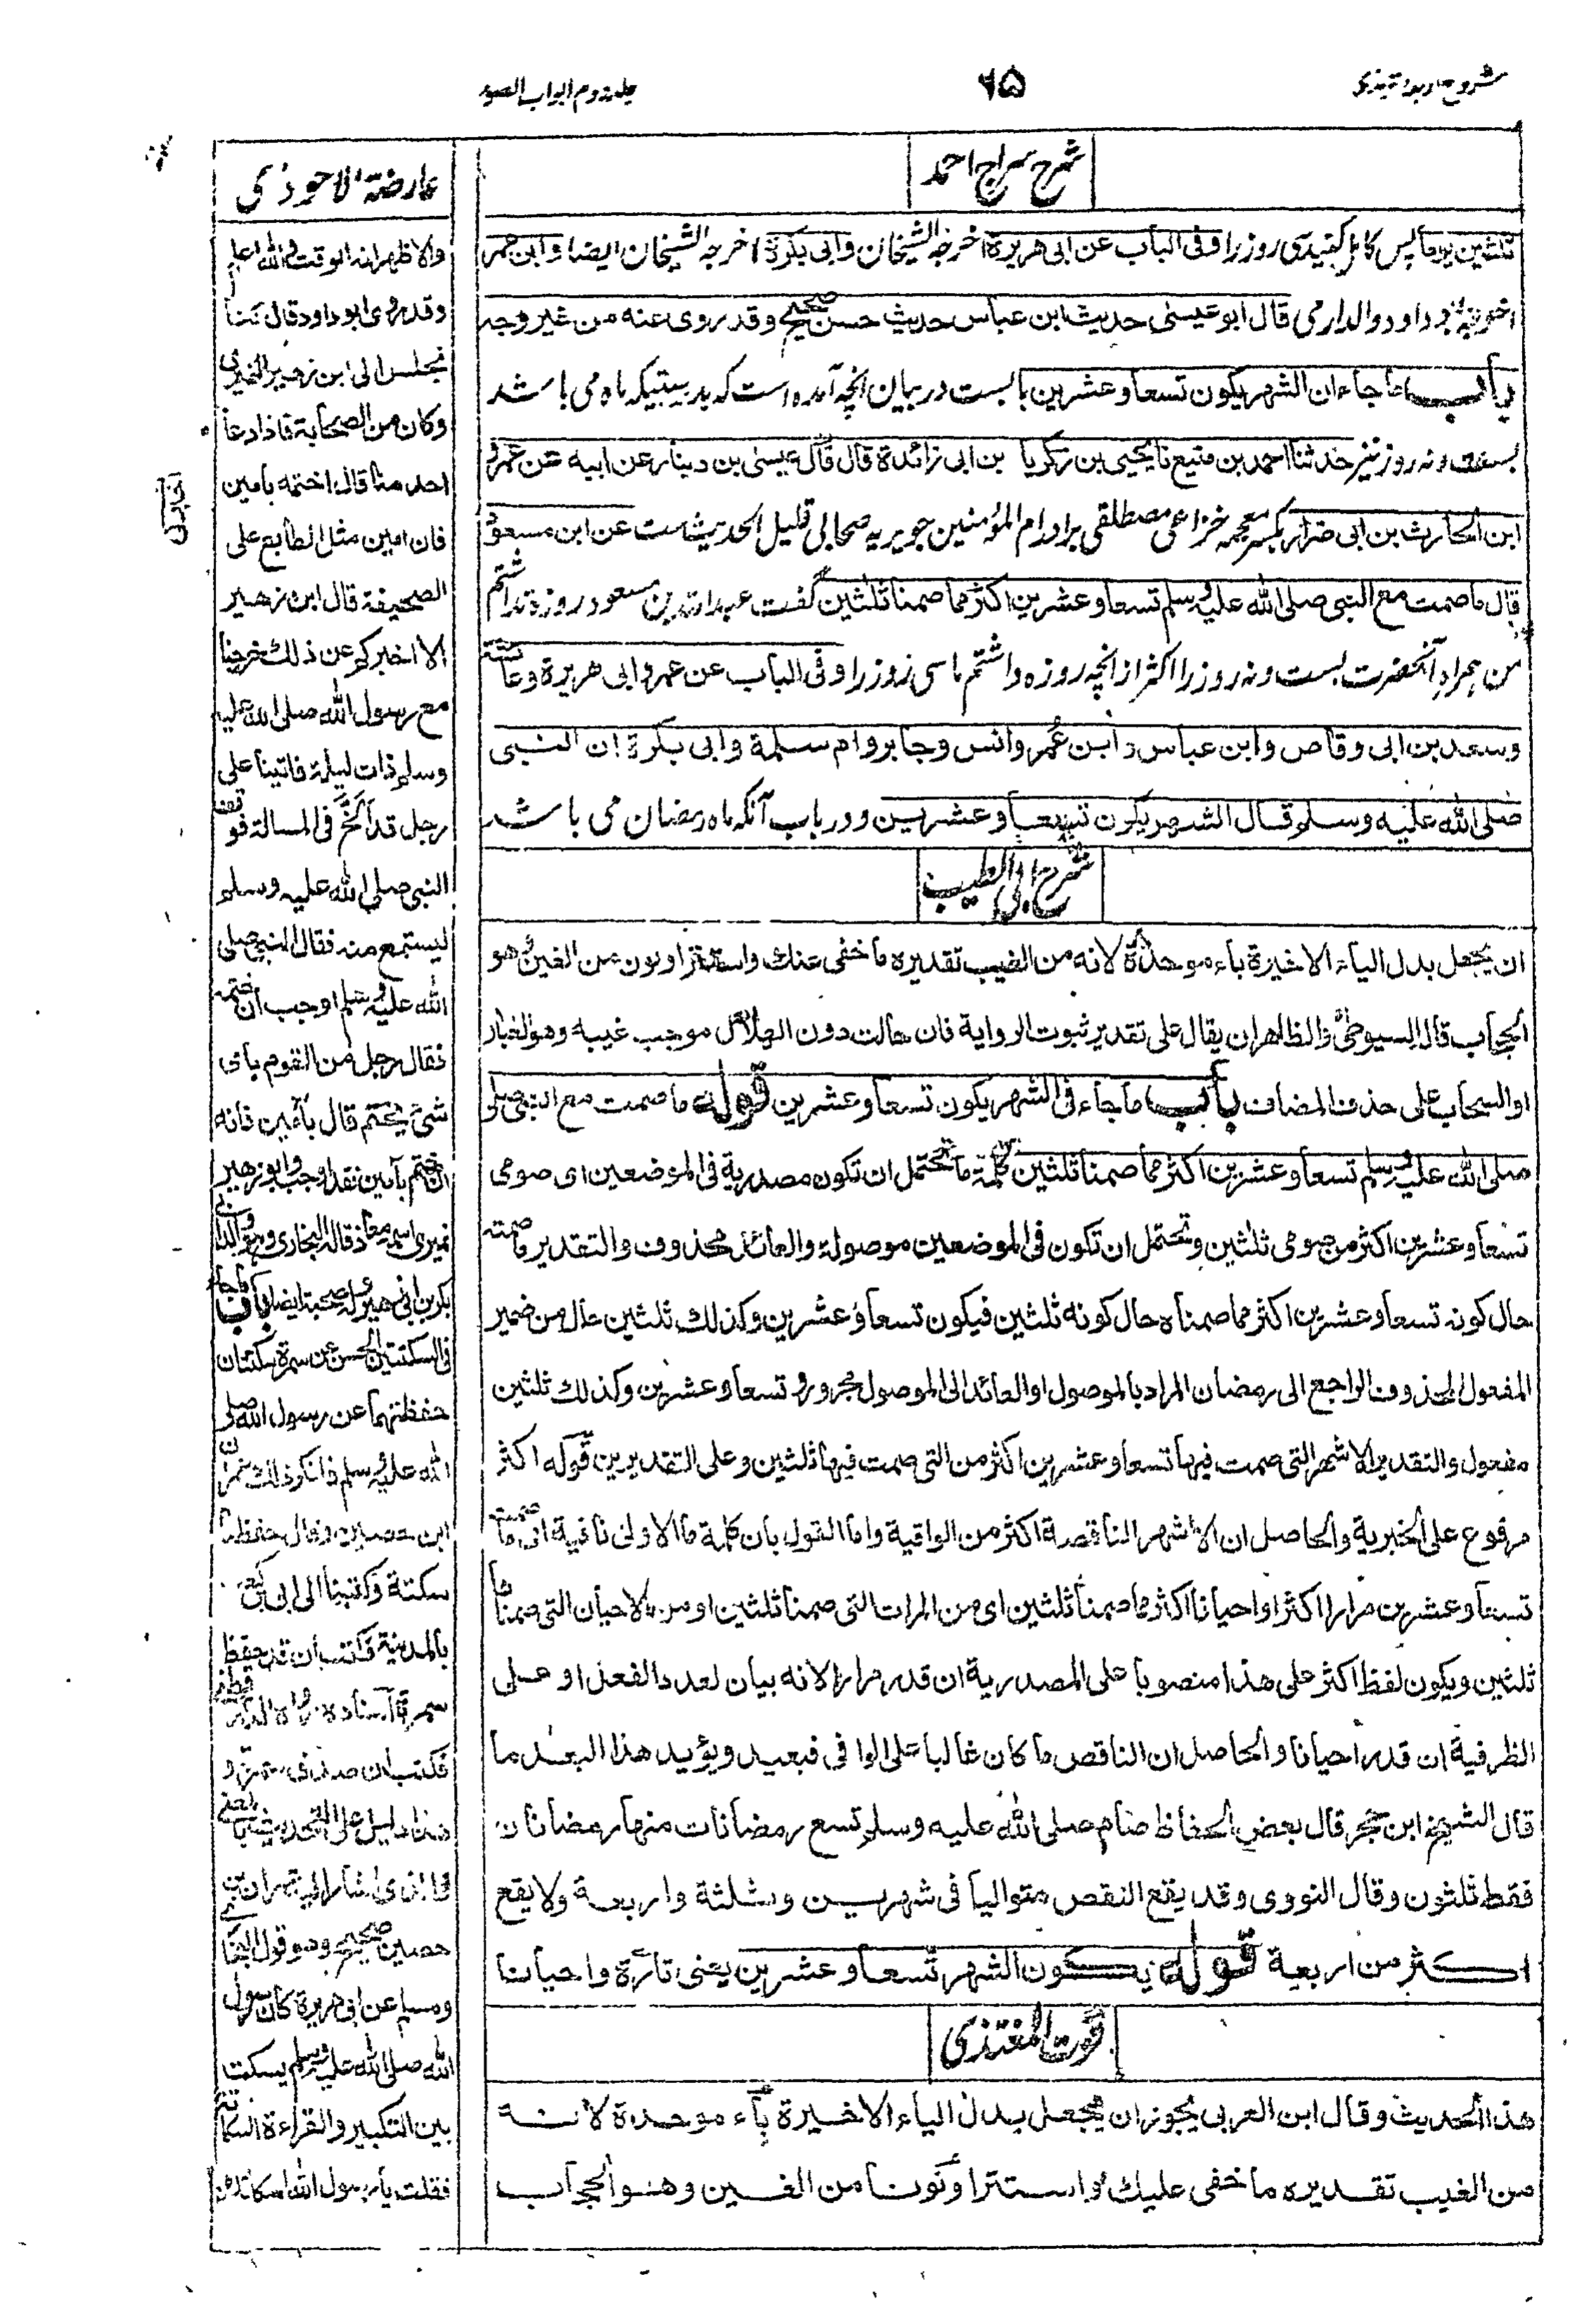 شروح اربعہ ترمذی
٢٥
جلد دوم ابواب الصوم
شرح سراج احمد
ثلثین یوما پس کامل کنید سی روز را وفی الباب عن ابی هریرة اخرجه الشیخان وابی بکرة اخرجه الشیخان ایضا وابن عمر
اخرجه ابو داود والدارمی قال ابو عیسی حدیث ابن عباس حدیث حسن صحیح وقد روی عنه من غیر وجه
باب ما جاء ان الشهر یکون تسعا وعشرین بالبست در بیان انچه آمده است که بدرستیکه ماه می باشد
بست ونه روز نیز حدثنا احمد بن منیع نا یحیی بن زکریا بن ابی زائدة قال قال عیسی بن دینار عن ابیه عن عمرو
ابن الحارث بن ابی ضرار بکسر معجمه خزاعی مصطلقی برادر ام المؤمنین جویریه صحابی قلیل الحدیث است عن ابن مسعود
قال ما صمت مع النبی صلی الله علیه وسلم تسعا وعشرین اکثر مما صمنا ثلثین گفت عبدالله بن مسعود روزه نداشتم
من همراه آنحضرت بست ونه روز را اکثر از انچه روزه داشتم ما سی روز را وفی الباب عن عمر وابی هریرة وعائشة
وسعد بن ابی وقاص وابن عباس وابن عمر وانس وجابر وام سلمة وابی بکرة ان النبی
صلی الله علیه وسلم قال الشهر یکون تسعا وعشرین ودر باب آنکه ماه رمضان می باشد
شرح ابی الطیب
ان یجعل بدل الیاء الاخیرة باء موحدة لانه من الغیب تقدیره ما خفی عنك واستتر او نون من الغین وهو
الحجاب قال السیوطی والظاهر ان یقال علی تقدیر ثبوت الروایة فان حالت دون الهلال موجب غیبه وهو الغبار
او السحاب علی حذف المضاف باب ما جاء فی الشهر یکون تسعا وعشرین قوله ما صمت مع النبی صلی
صلی الله علیه وسلم تسعا وعشرین اکثر مما صمنا ثلثین کلمة ما تحتمل ان تکون مصدریة فی الموضعین ای صومی
تسعا وعشرین اکثر من صومی ثلثین وتحتمل ان تکون فی الموضعین موصولة والعائد محذوف والتقدیر ما صمته
حال کونه تسعا وعشرین اکثر مما صمناه حال کونه ثلثین فیکون تسعا وعشرین وکذلك ثلثین حال من ضمیر
المفعول المحذوف الراجع الی رمضان المراد بالموصول او العائد الی الموصول مجرور وتسعا وعشرین وکذلك ثلثین
مفعول والتقدیر الاشهر التی صمت فیها تسعا وعشرین اکثر من التی صمت فیها ثلثین وعلی التقدیرین قوله اکثر
مرفوع علی الخبریة والحاصل ان الاشهر الناقصة اکثر من الوافیة واما القول بان کلمة ما الاولی نافیة ای ما صمت
تسعا وعشرین مرارا اکثر او احیانا اکثر مما صمنا ثلثین ای من المرات التی صمنا ثلثین او من الاحیان التی صمنا
ثلثین ویکون لفظ اکثر علی هذا منصوبا علی المصدریة ان قدر مرارا لانه بیان لعدد الفعل او علی
الظرفیة ان قدر احیانا والحاصل ان الناقص ما کان غالبا علی الوافی فبعید ویؤید هذا البعد ما
قال الشیخ ابن حجر قال بعض الحفاظ صام صلی الله علیه وسلم تسع رمضانات منها رمضانان
فقط ثلثون وقال النووی وقد یقع النقص متوالیا فی شهرین وثلثة واربعة ولا یقع
اکثر من اربعة قوله یکون الشهر تسعا وعشرین یعنی تارة واحیانا
قوت المغتذی
هذا الحدیث وقال ابن العربی یجوز ان یجعل بدل الیاء الاخیرة باء موحدة لانه
من الغیب تقدیره ما خفی علیك واستتر او نونا من الغین وهو الحجاب
عارضة الاحوذی
والاظهر انه الوقت والله اعلم
وقد روی ابو داود قال کنا
نجلس الی ابن زهیر النمیری
وکان من الصحابة فاذا دعا
احد منا قال اختمه بآمین
فان آمین مثل الطابع علی
الصحیفة قال ابن زهیر
الا اخبرکم عن ذلك خرجنا
مع رسول الله صلی الله علیه
وسلم ذات لیلة فاتینا علی
رجل قد الح فی المسالة فوقف
النبی صلی الله علیه وسلم
لیستمع منه فقال النبی صلی
الله علیه وسلم اوجب ان ختمه
فقال رجل من القوم بای
شئ یختم قال بآمین فانه
ان ختم بآمین فقد اوجب وابو زهیر
نمیری اسمه معاذ قاله البخاری
فی السکتتین الحسن عن سمرة سکتتان
حفظتهما عن رسول الله صلی
الله علیه وسلم فانکر ذلك عمران
ابن حصین وقال حفظنا
سکتة فکتبنا الی ابی بن کعب
بالمدینة فکتب ان قد حفظ
سمرة
حصین صحیح وهو قول
ومسلم عن ابی هریرة کان رسول
الله صلی الله علیه وسلم یسکت
بین التکبیر والقراءة
فقلت یا رسول الله